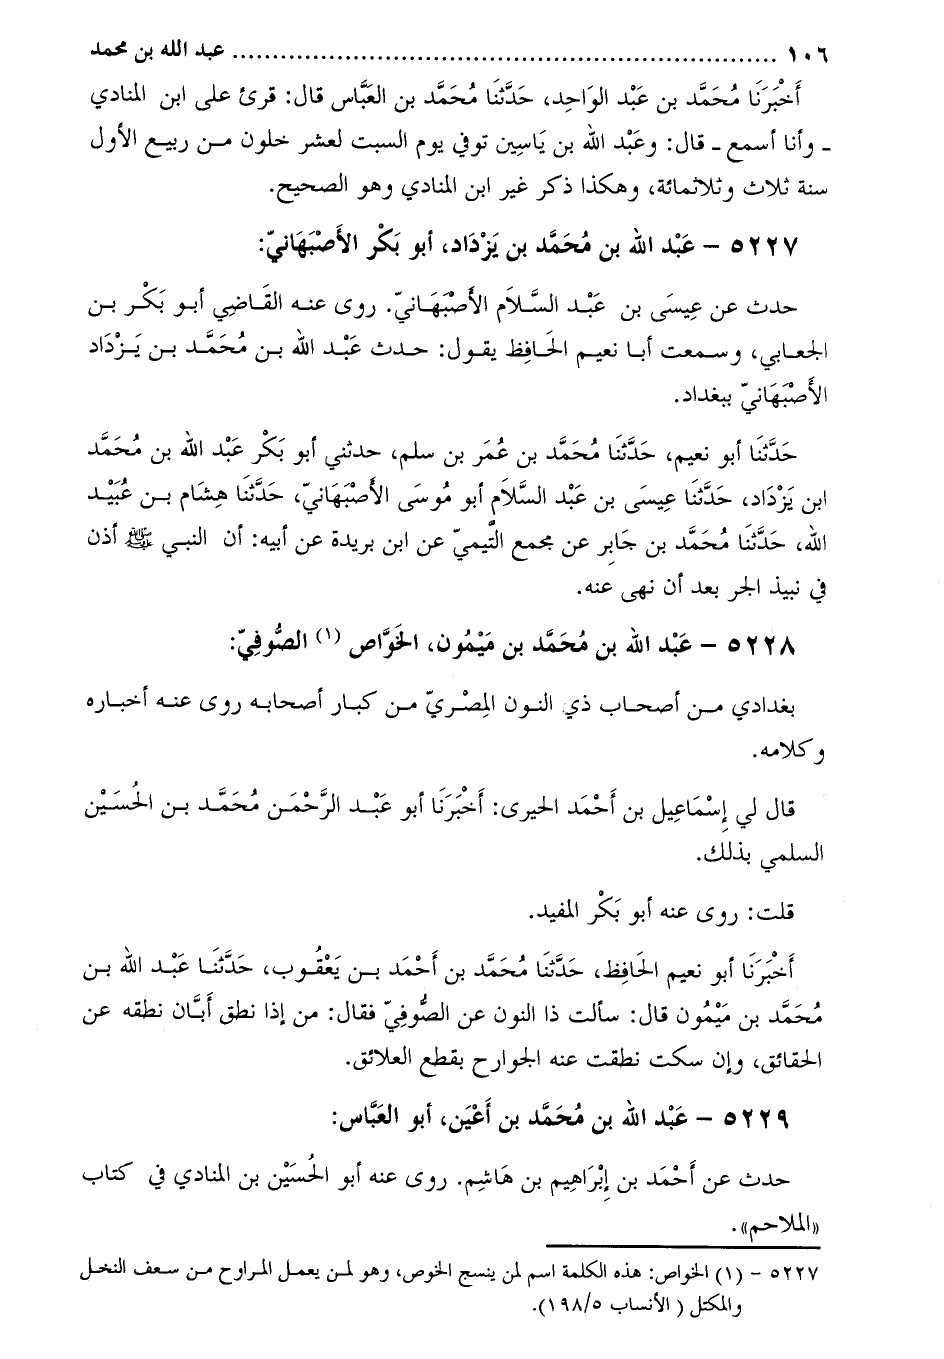 ١٠٦ ........................................................................ عبد الله بن محمد
أَخْبَرَنَا مُحَمَّد بن عَبْد الوَاحِد، حَدَّثَنَا مُحَمَّد بن العَبَّاس قال: قرئ على ابن المنادي
ـ وأنا أسمع ـ قال: وعَبْد الله بن يَاسِين توفي يوم السبت لعشر خلون من ربيع الأول
سنة ثلاث وثلاثمائة، وهكذا ذكر غير ابن المنادي وهو الصحيح.
٥٢٢٧ – عَبْد الله بن مُحَمَّد بن يَزْدَاد، أبو بَكْر الأَصْبَهَانيّ:
حدث عن عِيسَى بن عَبْد السَّلاَم الأَصْبَهَانيّ. روى عنه القَاضِي أبو بَكْر بن
الجعابي، وسمعت أبا نعيم الحَافِظ يقول: حدث عَبْد الله بن مُحَمَّد بن يَزْدَاد
الأَصْبَهَانيّ ببغداد.
حَدَّثَنَا أبو نعيم، حَدَّثَنَا مُحَمَّد بن عُمَر بن سلم، حدثني أبو بَكْر عَبْد الله بن مُحَمَّد
ابن يَزْدَاد، حَدَّثَنَا عِيسَى بن عَبْد السَّلاَم أبو مُوسَى الأَصْبَهَانيّ، حَدَّثَنَا هِشَام بن عُبَيْد
الله، حَدَّثَنَا مُحَمَّد بن جَابِر عن مجمع التَّيميّ عن ابن بريدة عن أبيه: أن النبي ﷺ أذن
في نبيذ الجر بعد أن نهى عنه.
٥٢٢٨ – عَبْد الله بن مُحَمَّد بن مَيْمُون، الخَوَّاص (١) الصُّوفِيّ:
بغدادي من أصحاب ذي النون المِصْريّ من كبار أصحابه روى عنه أخباره
وكلامه.
قال لي إِسْمَاعِيل بن أَحْمَد الحيرى: أَخْبَرَنَا أبو عَبْد الرَّحْمَن مُحَمَّد بن الحُسَيْن
السلمي بذلك.
قلت: روى عنه أبو بَكْر المفيد.
أَخْبَرَنَا أبو نعيم الحَافِظ، حَدَّثَنَا مُحَمَّد بن أَحْمَد بن يَعْقُوب، حَدَّثَنَا عَبْد الله بن
مُحَمَّد بن مَيْمُون قال: سألت ذا النون عن الصُّوفِيّ فقال: من إذا نطق أَبَّان نطقه عن
الحقائق، وإن سكت نطقت عنه الجوارح بقطع العلائق.
٥٢٢٩ – عَبْد الله بن مُحَمَّد بن أَعْيَن، أبو العَبَّاس:
حدث عن أَحْمَد بن إِبْرَاهِيم بن هَاشِم. روى عنه أبو الحُسَيْن بن المنادي في كتاب
«الملاحم».
٥٢٢٧ – (١) الخواص: هذه الكلمة اسم لمن ينسج الخوص، وهو لمن يعمل المراوح من سعف النخل
والمكتل ( الأنساب ١٩٨/٥).